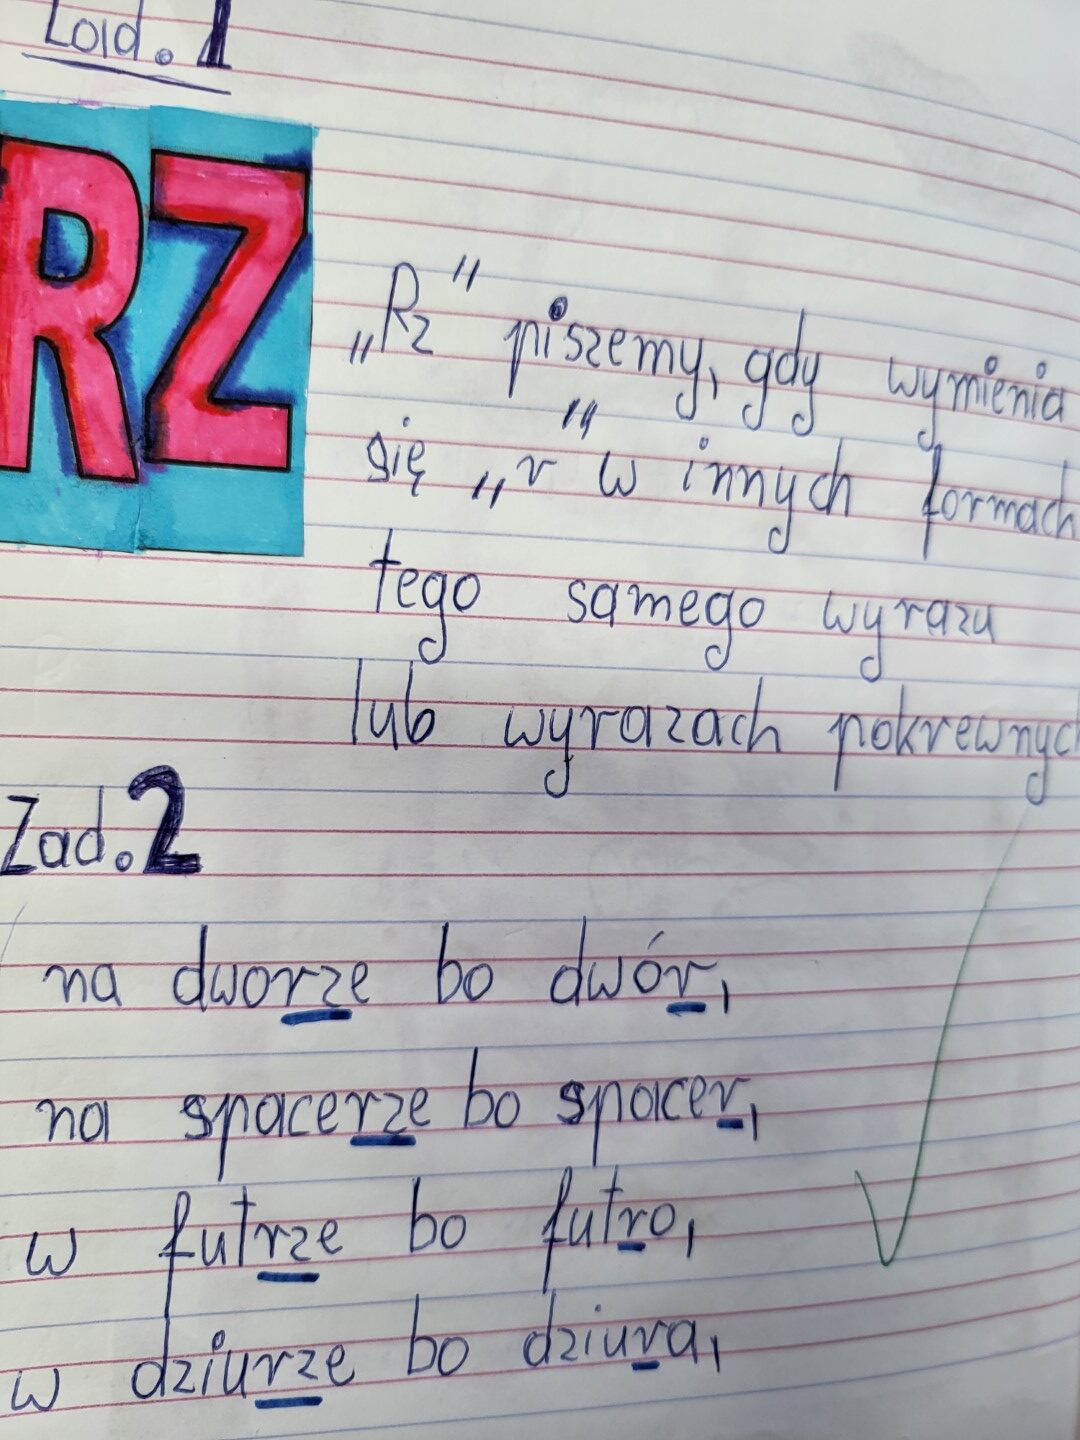 Zad. 1
RZ
„Rz" piszemy, gdy wymienia
się „r" w innych formach
tego samego wyrazu
lub wyrazach pokrewnych
Zad. 2
na dworze bo dwór,
na spacerze bo spacer,
w futrze bo futro,
w dziurze bo dziura,